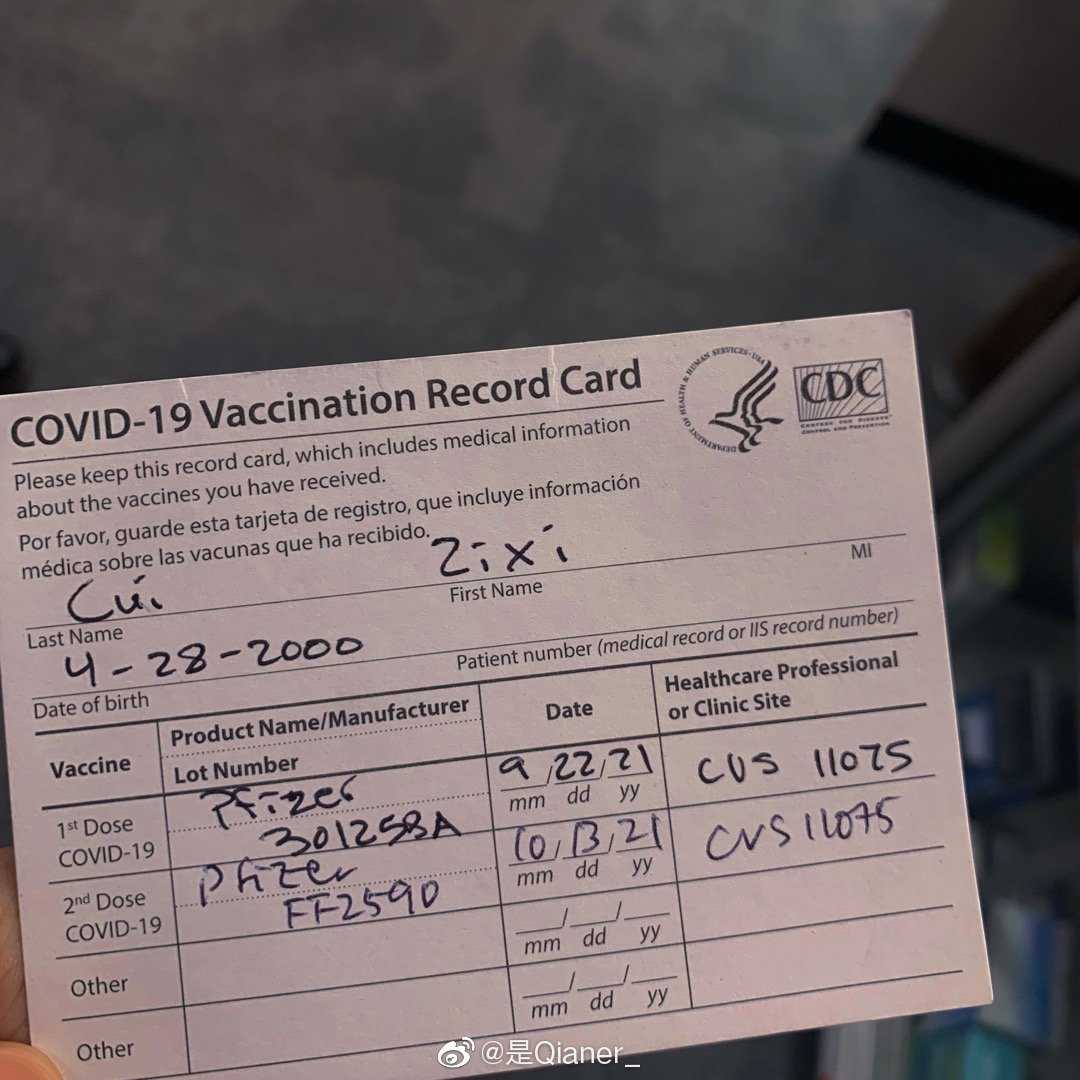 COVID-19 Vaccination Record Card
DEPARTMENT OF HEALTH & HUMAN SERVICES · USA
CDC
CENTERS FOR DISEASE
CONTROL AND PREVENTION
Please keep this record card, which includes medical information
about the vaccines you have received.
Por favor, guarde esta tarjeta de registro, que incluye información
médica sobre las vacunas que ha recibido.
Cui Zixi
Last Name First Name MI
4-28-2000
Date of birth Patient number (medical record or IIS record number)
Vaccine Product Name/Manufacturer Date Healthcare Professional
Lot Number or Clinic Site
1st Dose Pfizer 9/22/21 CVS 11075
COVID-19 301258A mm dd yy
2nd Dose Pfizer 10/13/21 CVS 11075
COVID-19 FF2590 mm dd yy
Other / /
mm dd yy
Other / /
mm dd yy
@是Qianer_